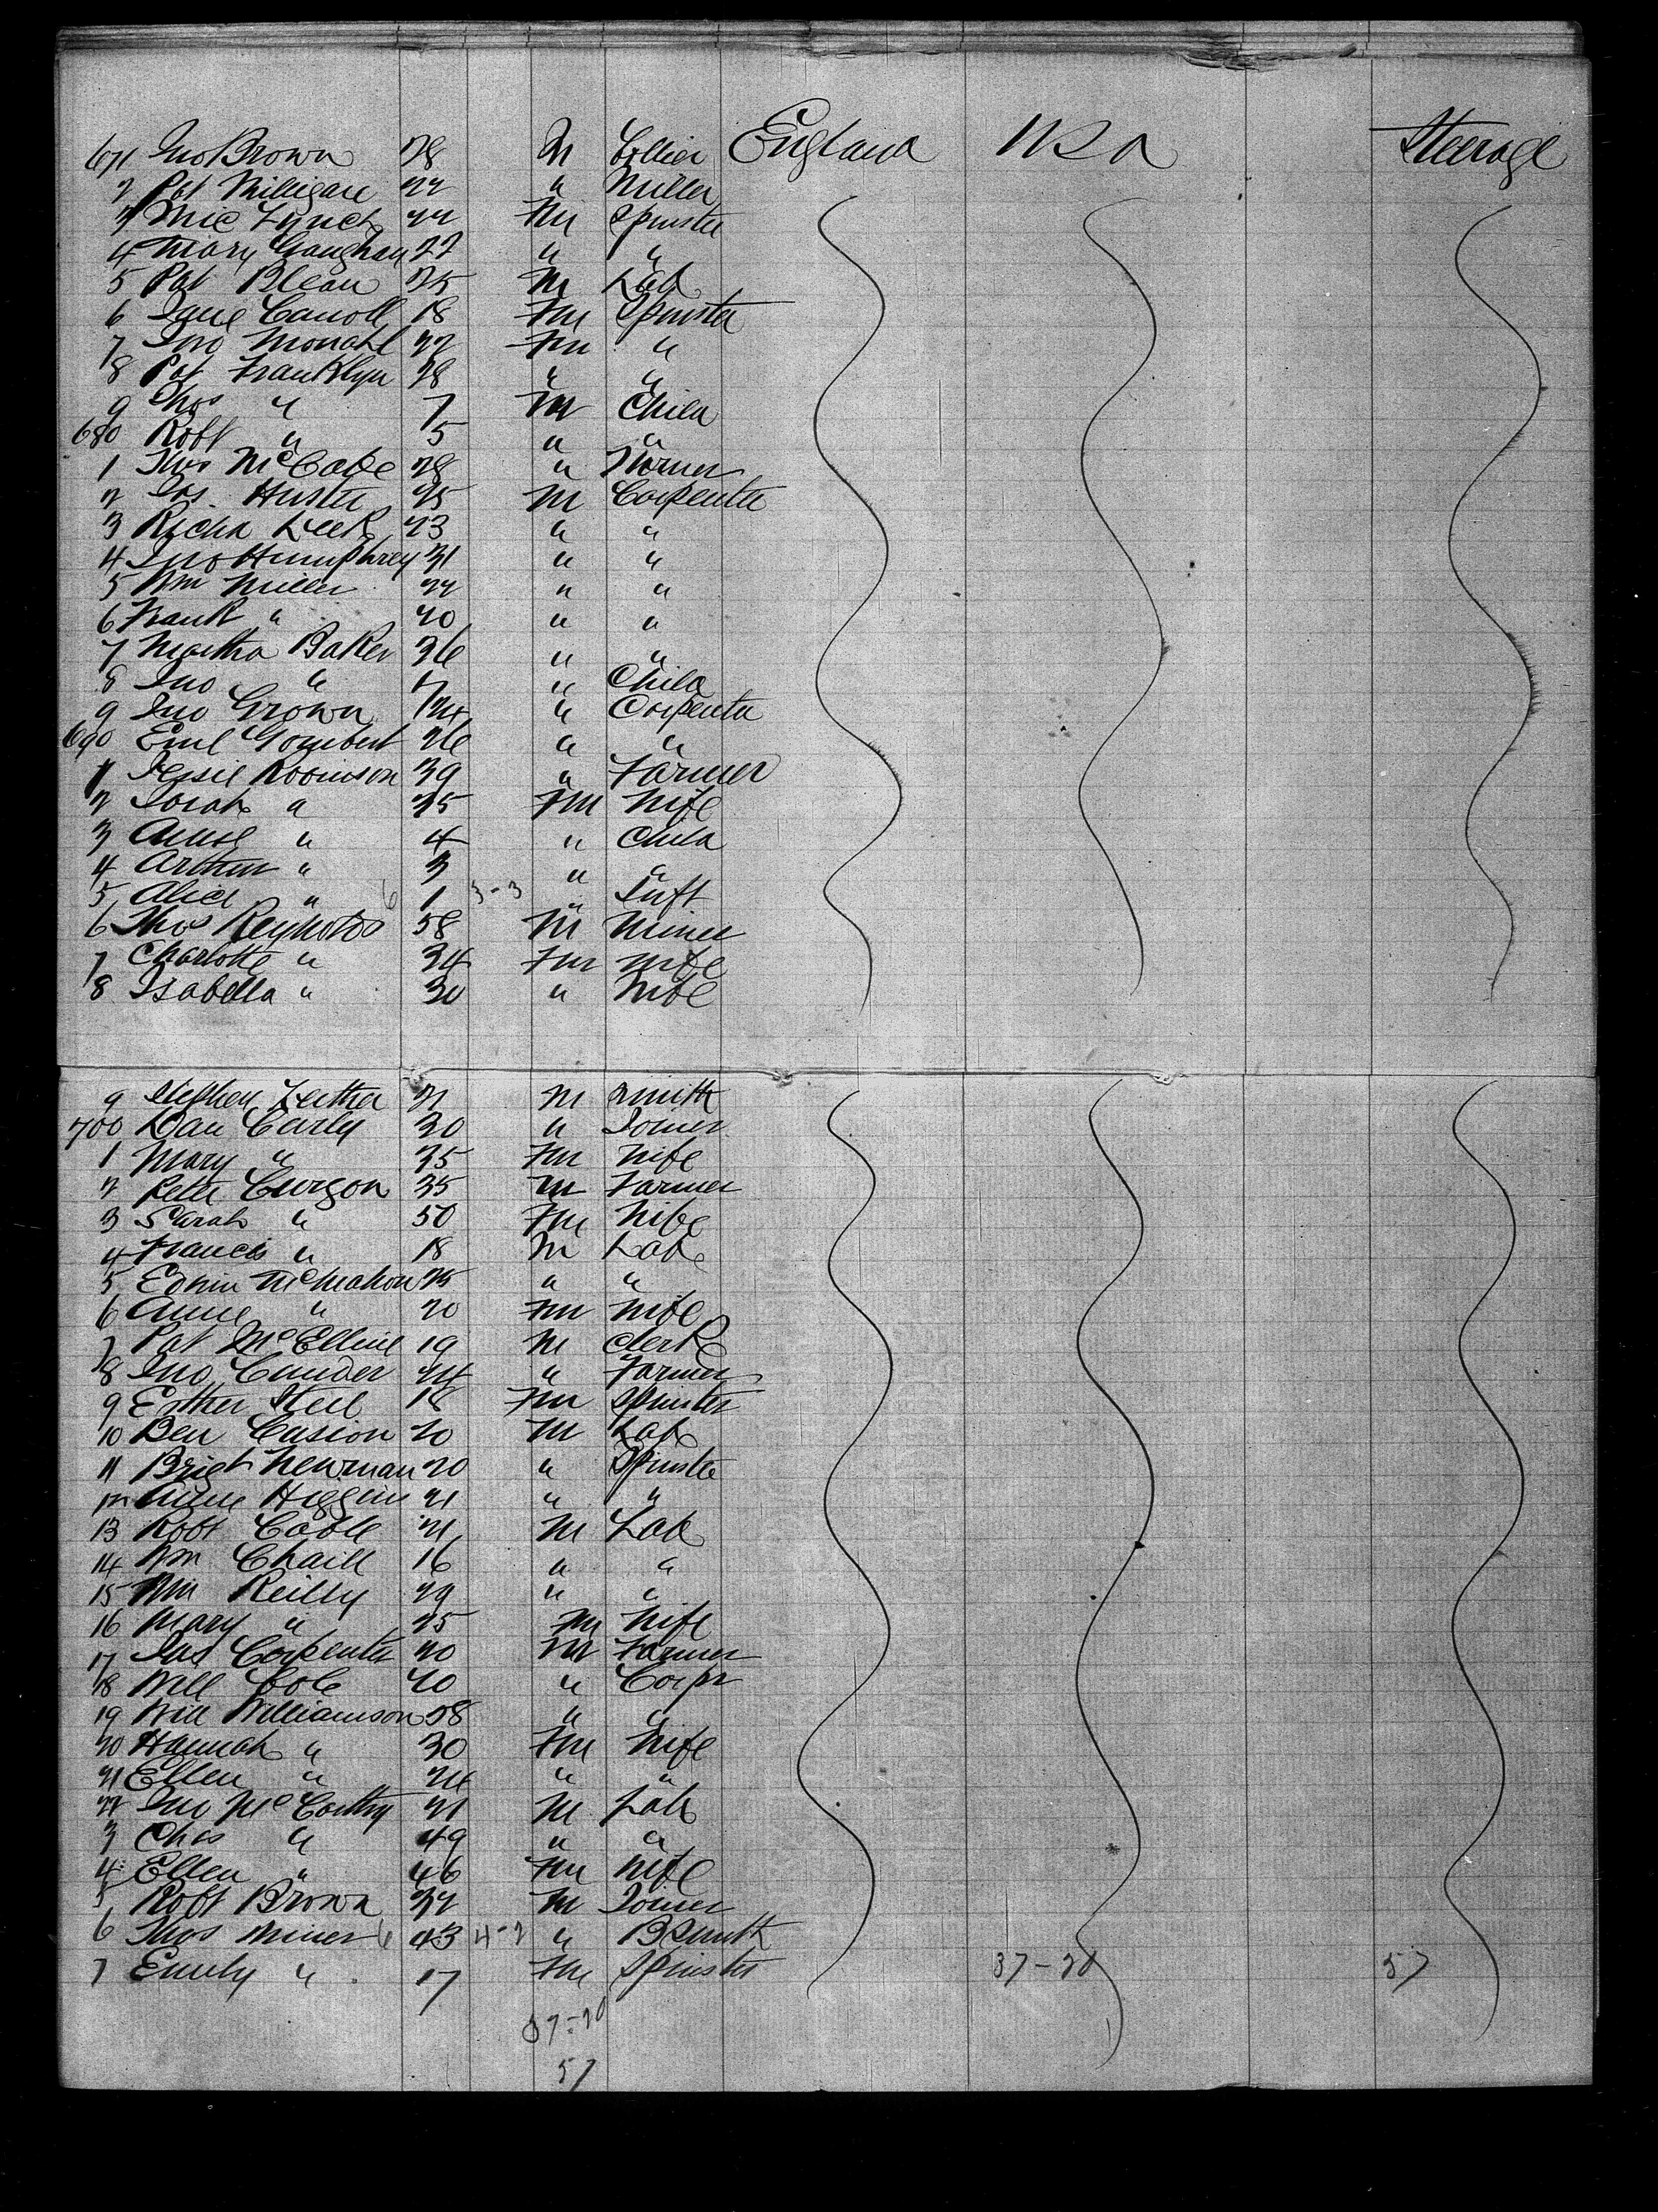 671 Jno Brown 28 M Collier England USA Steerage
2 Pat Milligan 22 " Miller
3 Mic Lynch 22 Fm Spinster
4 Mary Gaughan 22 " "
5 Pat Blean 25 M Lab
6 Jane Carroll 18 Fm Spinster
7 Jno 22 Fm "
8 Pat Franklyn 28 " "
9 Thos " 7 M Child
680 Robt " 5 " "
1 Thos McCabe 28 " Farmer
2 Jos. Huster 25 M Carpenter
3 Richd Leek 23 " "
4 Jno Humphrey 31 " "
5 Wm Miller 22 " "
6 Frank " 20 " "
7 Martha Baker 36 " "
8 Jno " 7 " Child
9 Jno Grown 24 " Carpenter
690 Emil Gombert 26 " "
1 Jessie Robinson 39 " Farmer
2 Sarah " 25 Fm Wife
3 Annie " 4 " Child
4 Arthur " 3 " "
5 Alice " 6 1 3-3 " Inft
6 Thos Reynolds 58 M Miner
7 Charlotte " 34 Fm Wife
8 Isabella " 30 " Wife
9 Stephen 21 M Smith
700 Dan Carly 30 " Joiner
1 Mary " 25 Fm Wife
2 Peter Curzon 35 M Farmer
3 Sarah " 50 Fm Wife
4 Francis " 18 M Lab
5 Edwin McMahon 25 " "
6 Anne " 20 Fm Wife
7 Pat McElline 19 M Clerk
8 Jno Cunder 24 " Farmer
9 Esther Steel 18 Fm Spinster
10 Ben Casion 20 M Lab
11 Bridt Newman 20 " Spinster
12 Anne Higgins 21 " "
13 Robt Cable 21 M Lab
14 Wm Chaill 16 " "
15 Wm Reilly 29 " "
16 Mary " 25 Fm Wife
17 Jas Carpenter 20 M Farmer
18 Will Cole 40 " Carpr
19 Will Williamson 58 " "
20 Hannah " 30 Fm Wife
21 Ellen " 24 " "
22 Jno McCarthy 21 M Lab
3 Chas " 49 " "
4 Ellen " 46 Fm Wife
5 Robt Brown 32 M Joiner
6 Thos Miner 6 43 4-2 " BSmith
7 Emily " 17 Fm Spinster 37-20 57
37-20
57